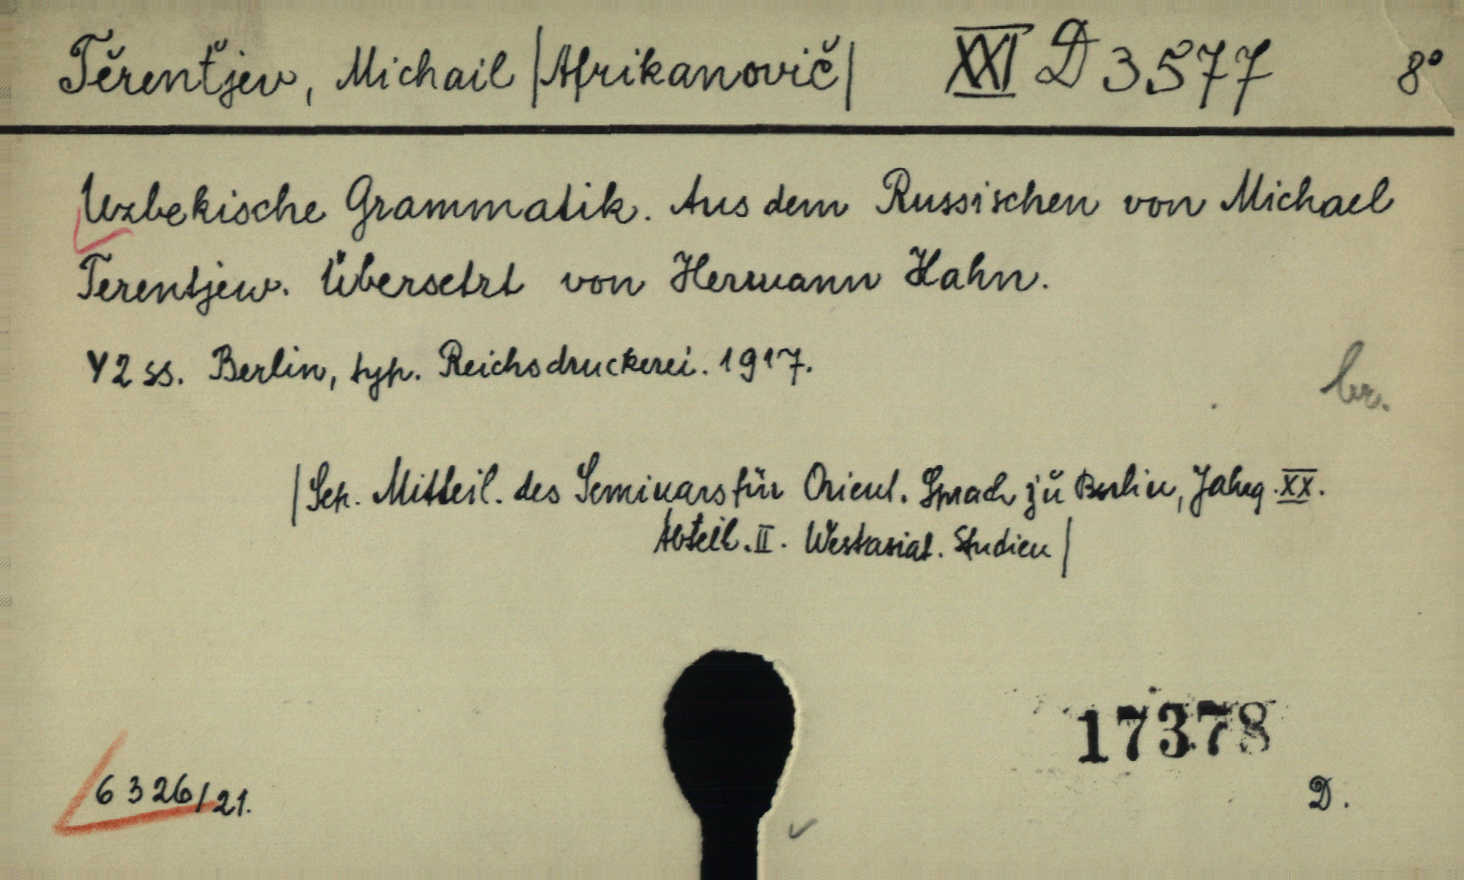 Těrenťjev, Michail |Afrikanovič| XXI D 3577 8°
Uzbekische Grammatik. Aus dem Russischen von Michael
Terentjew. Übersetzt von Hermann Hahn.
Y2 ss. Berlin, typ. Reichsdruckerei. 1917.
br.
|Sep. Mitteil. des Seminars für Orient. Sprach zu Berlin, Jahrg. XX.
Abteil. II. Westasiat. Studien|
17378
6326/21.
D.